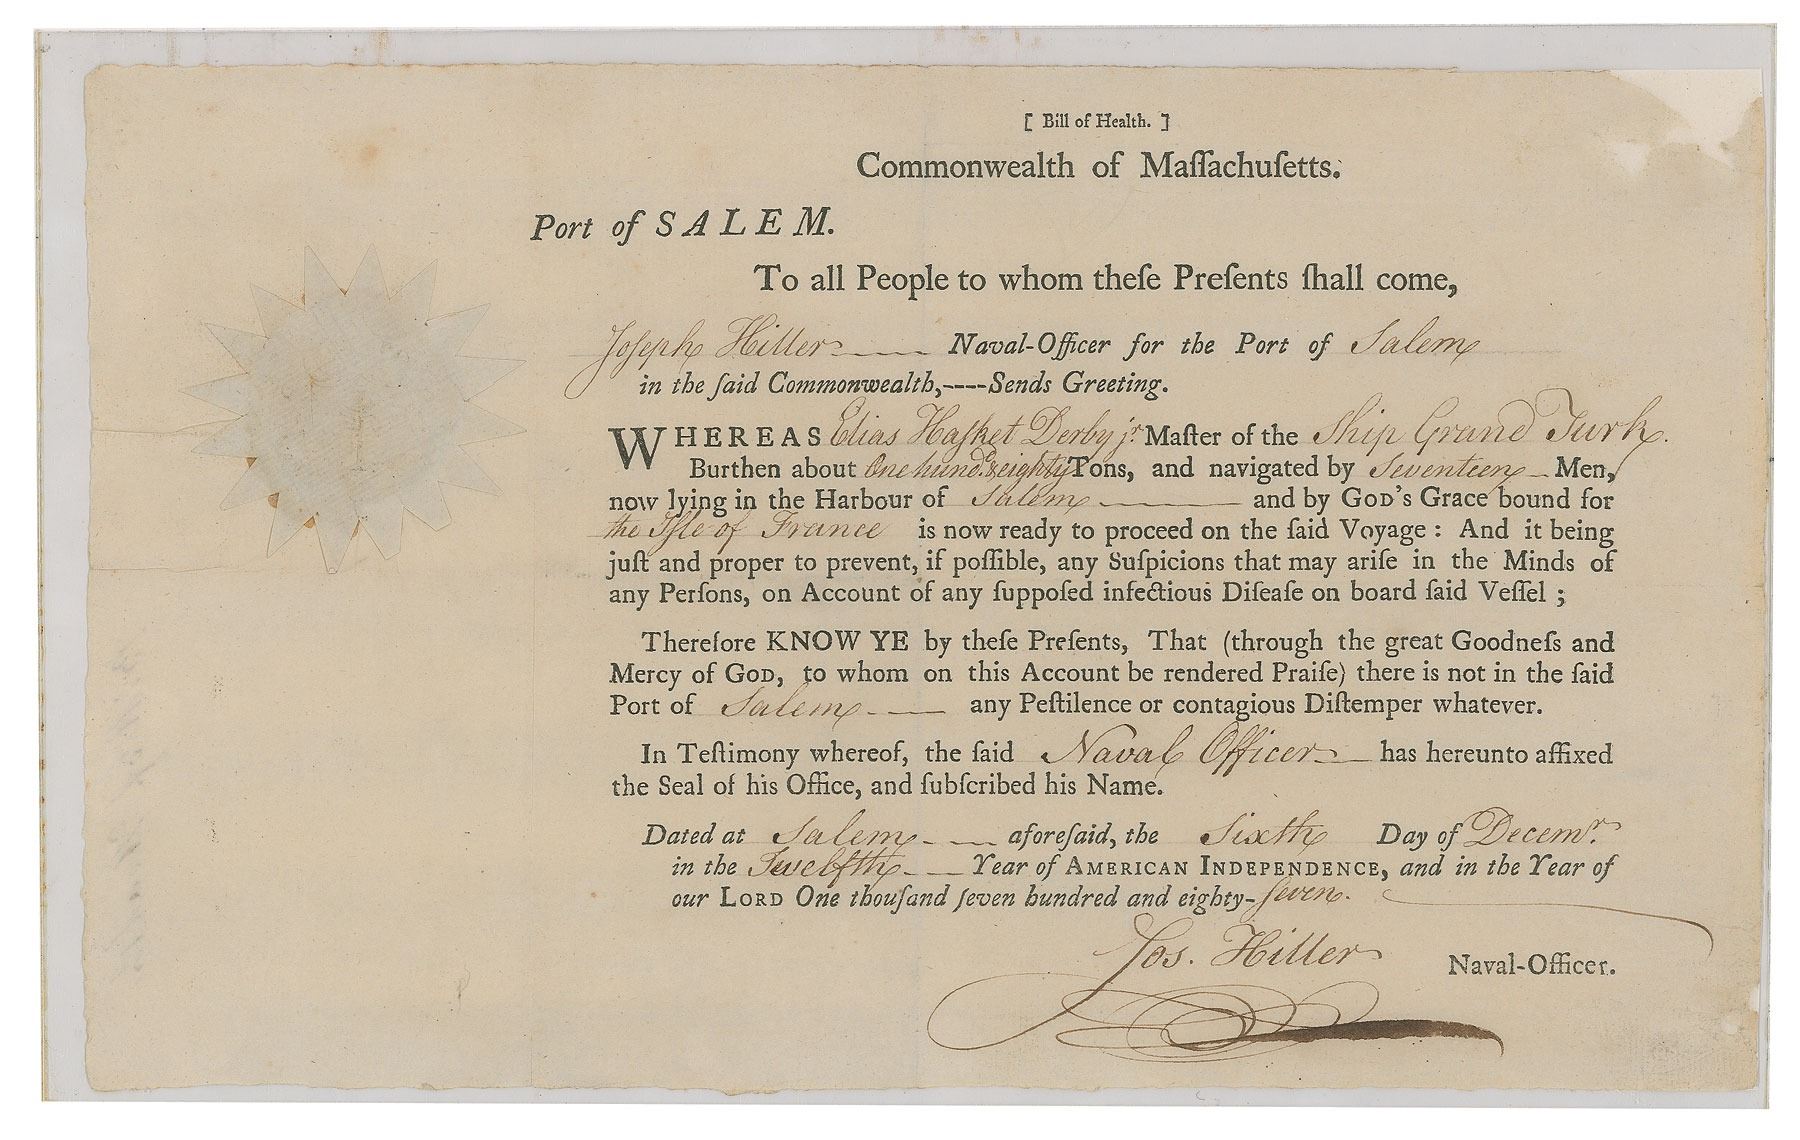 [ Bill of Health. ]
Commonwealth of Maſſachuſetts.
Port of SALEM.
To all People to whom theſe Preſents ſhall come,
Joſeph Hiller Naval-Officer for the Port of Salem
in the ſaid Commonwealth,----Sends Greeting.
WHEREAS Elias Haſket Derby jr Maſter of the Ship Grand Turk.
Burthen about One hund. & eighty Tons, and navigated by Seventeen Men,
now lying in the Harbour of Salem and by GOD'S Grace bound for
the Iſle of France is now ready to proceed on the ſaid Voyage : And it being
juſt and proper to prevent, if poſſible, any Suſpicions that may ariſe in the Minds of
any Perſons, on Account of any ſuppoſed infectious Diſeaſe on board ſaid Veſſel ;
Therefore KNOW YE by theſe Preſents, That (through the great Goodneſs and
Mercy of GOD, to whom on this Account be rendered Praiſe) there is not in the ſaid
Port of Salem any Peſtilence or contagious Diſtemper whatever.
In Teſtimony whereof, the ſaid Naval Officer has hereunto affixed
the Seal of his Office, and ſubſcribed his Name.
Dated at Salem aforeſaid, the Sixth Day of Decemr.
in the Twelfth Year of AMERICAN INDEPENDENCE, and in the Year of
our LORD One thouſand ſeven hundred and eighty-ſeven.
Jos. Hiller Naval-Officer.